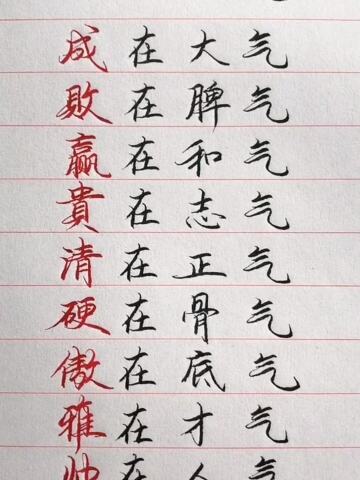 成在大气
败在脾气
赢在和气
貴在志气
清在正气
硬在骨气
傲在底气
雅在才气
帅在人气